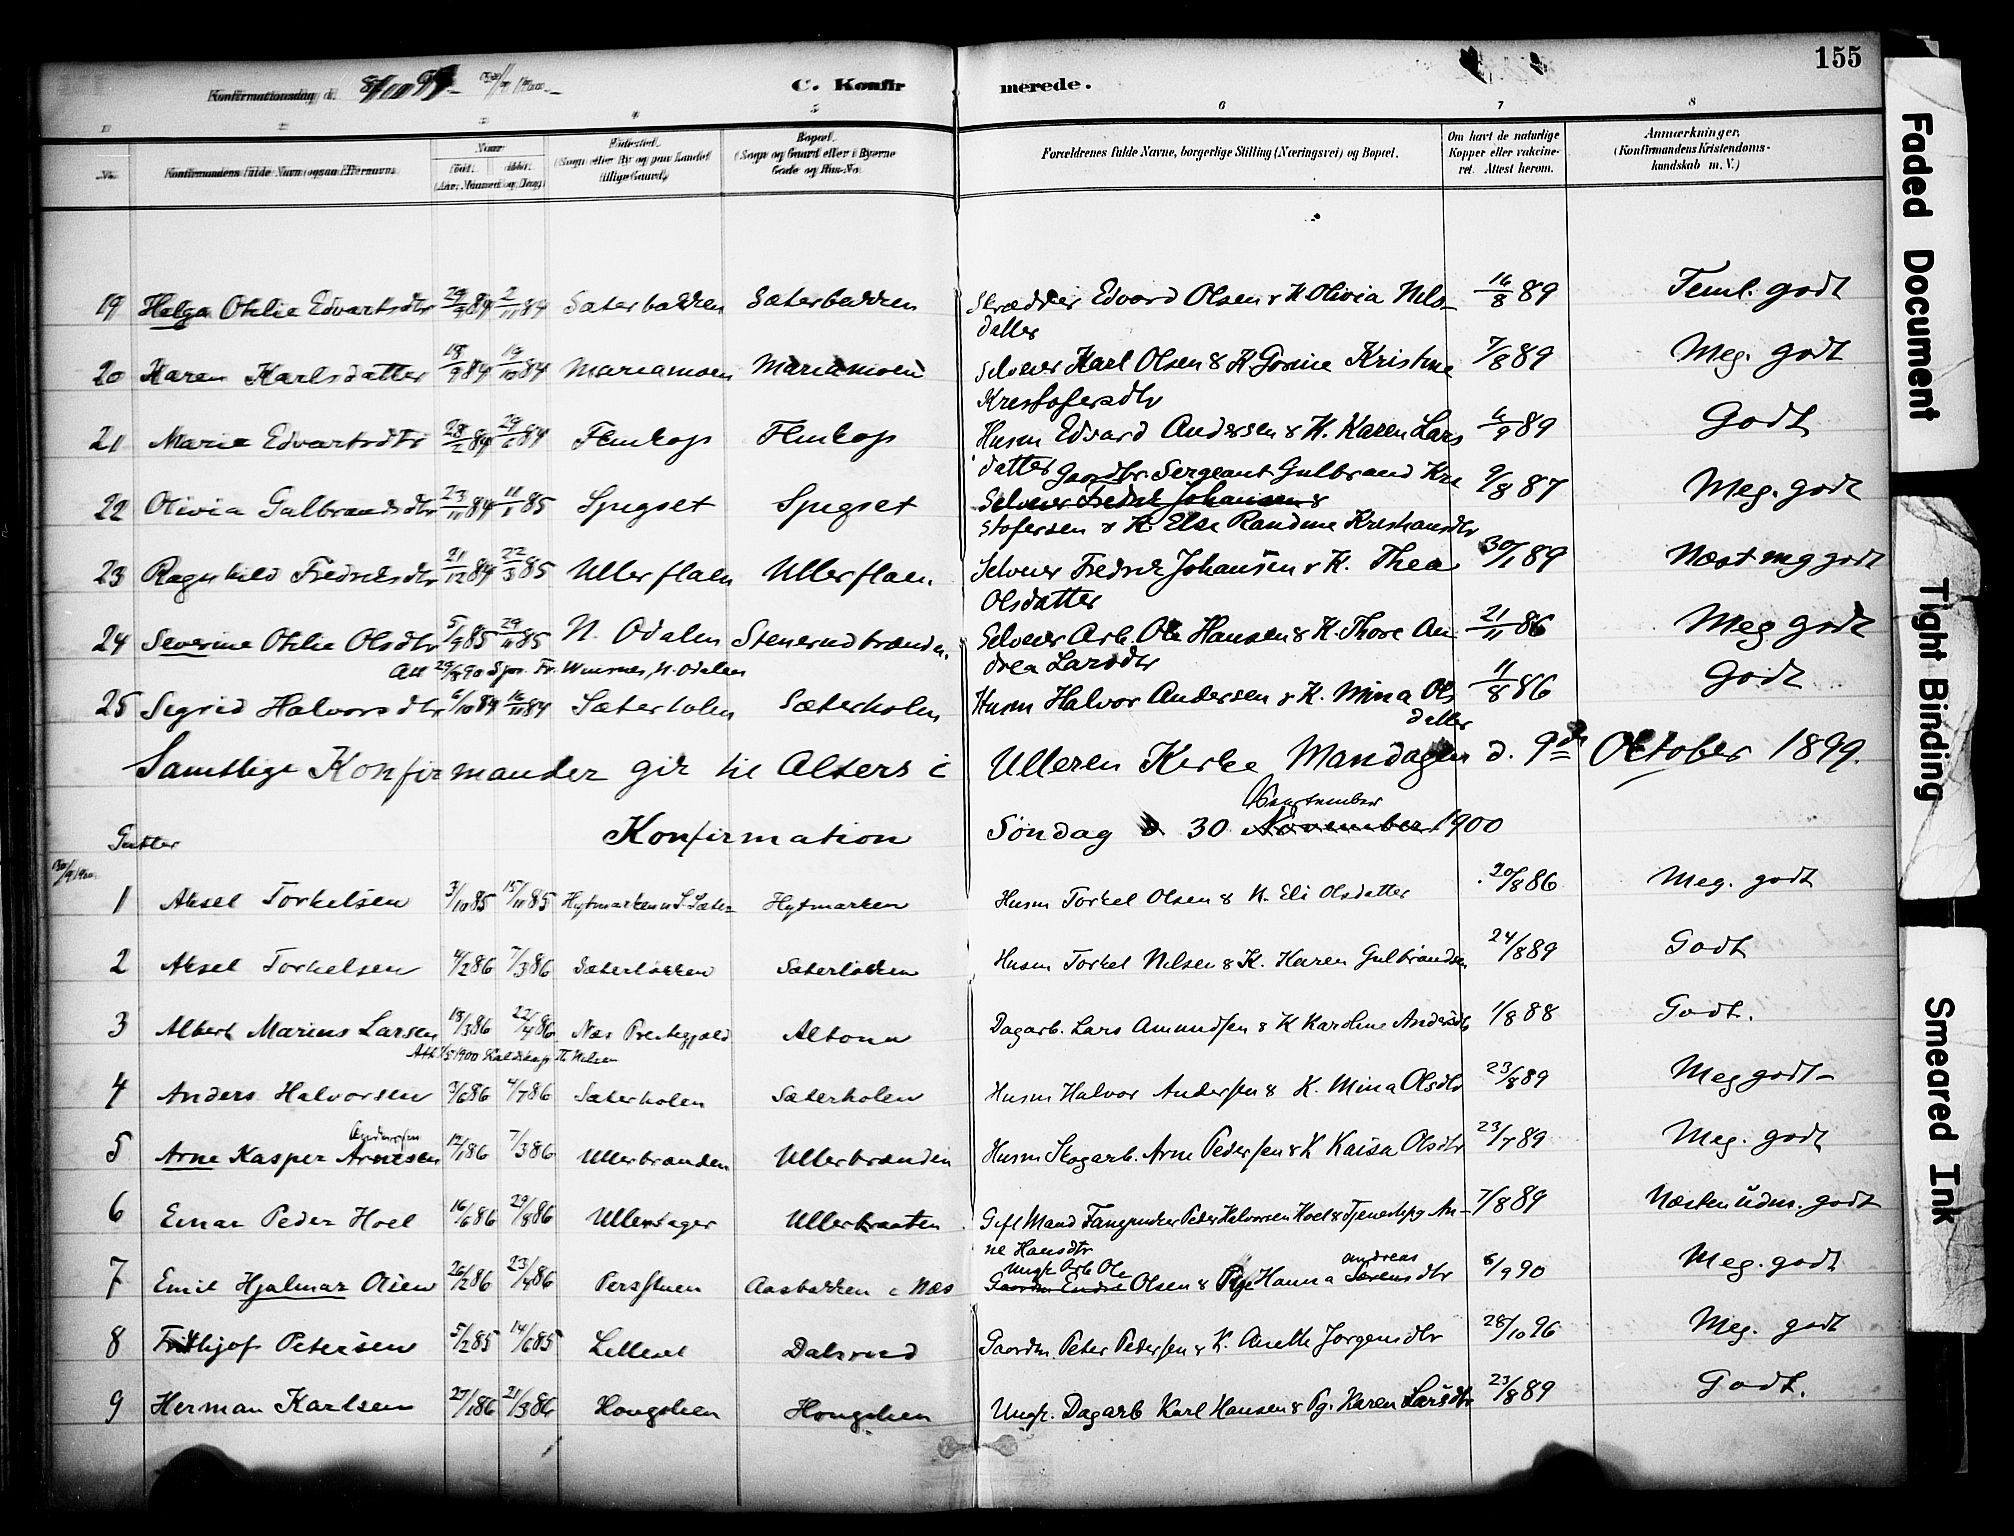 155
Konfirmationsdag d. 8/10 99. 30/9 1900.
C. Konfirmerede.
1 2 3 4 5 6 7 8
No. Konfirmandens fulde Navn (ogsaa Efternavn). Naar født. døbt. (Aar, Maaned og Dag). Fødested. (Sogn eller By og paa Landet tillige Gaard). Bopæl. (Sogn og Gaard eller i Byerne Gade og Hus-No. Forældrenes fulde Navne, borgerlige Stilling (Næringsvei) og Bopæl. Om havt de naturlige Kopper eller vakcineret. Attest herom. Anmærkninger. (Konfirmandens Kristendomskundskab m. V.)
19 Helga Othilie Edvartsdtr 29/9 84 2/11 84 Sæterbakken Sæterbakken Skrædder Edvard Olsen & K. Olivia Nilsdatter 16/8 89 Teml. godt
20 Karen Karlsdatter 18/9 84 19/10 84 Mariamoen Mariamoen Selveier Karl Olsen & K. Gorine Kristine Kristofersdtr 7/8 89 Meg. godt
21 Marie Edvartsdtr 28/2 84 29/6 84 Husm Edvard Andersen & K. Karen Larsdatter 6/9 89 Godt
22 Olivia Gulbrandsdtr 23/11 84 11/1 85 Spigset Spigset Gaardbr. Sergeant Gulbrand Kristofersen & K. Else Randine Kristiansdtr 9/8 87 Meg. godt
Selveier Fredrik Johansen &
23 Ragnhild Fredriksdtr 21/12 84 22/3 85 Ullerflaen Ullerflaen. Selveier Fredrik Johansen & K. Thea Olsdatter 30/1 89 Næst mg godt
24 Severine Othilie Olsdtr 5/9 85 29/11 85 N. Odalen Stenerudbraaden. Selveier Arb. Ole Hansen & K. Thore Andrea Larsdtr 21/11 86 Meg godt
Att 29/8 90 N. Odalen
25 Sigrid Halvorsdtr 6/10 84 16/11 84 Sæterholen Sæterholen Husm Halvor Andersen & K. Mina Olsdatter 11/8 86 Godt
Samtlige Konfirmander gik til Alters i Ulleren Kirke Mandagen d. 9de Oktober 1899.
September
Konfirmation Søndag d 30 November 1900
Gutter
30/9 1900.
1 Aksel Torkelsen 3/10 85 15/11 85 Hytmarken Hytmarken Husm Torkel Olsen & K. Eli Olsdatter 20/8 86 Meg. godt
2 Aksel Torkelsen 4/2 86 7/3 86 Sæterløkken Sæterløkken Husm Torkel Nilsen & K. Karen Gulbrandsen 24/8 89 Godt
3 Albert Marius Larsen 18/3 86 22/4 86 Næs Prestegjæld Altona Dagarb. Lars Amundsen & K Karoline Andersdtr 1/8 88 Godt.
4 Anders Halvorsen 3/6 86 4/7 86 Sæterholen Sæterholen Husm Halvor Andersen & K. Mina Olsdtr 23/8 89 Meg godt
Andersen
5 Arne Kasper Arnesen 12/1 86 7/3 86 Ullerbraaden Ullerbraaden Husm Skogarb. Arne Pedersen & K Kaisa Olsdtr 23/7 89 Meg. godt
6 Einar Peder Hoel 16/6 86 29/8 86 Ullensager Ullerbraaten Gift Mand Fangevokter Peder Halvorsen Hoel & Tjenestepg Anne Hansdtr 7/8 89 Næsten udm. godt
Ungk. Arb Ole andreas
7 Emil Hjalmar Olsen 26/2 86 23/4 86 Persstuen Aasbakken i Næs Gaardm Endre Olsen & Pige Hanna Sørensdtr 6/9 90 Meg. godt
8 Frithjof Petersen 5/2 85 14/6 85 Lilleset Dalsrud Gaardm. Peter Pedersen & K. Anette Jørgensdtr 28/10 96 Meg. godt
9 Herman Karlsen 27/1 86 21/3 86 Hougslien Hougslien Ungk. Dagarb Karl Hansen & Pg. Karen Larsdtr 23/8 89 Godt.
Faded Document
Tight Binding
Smeared Ink